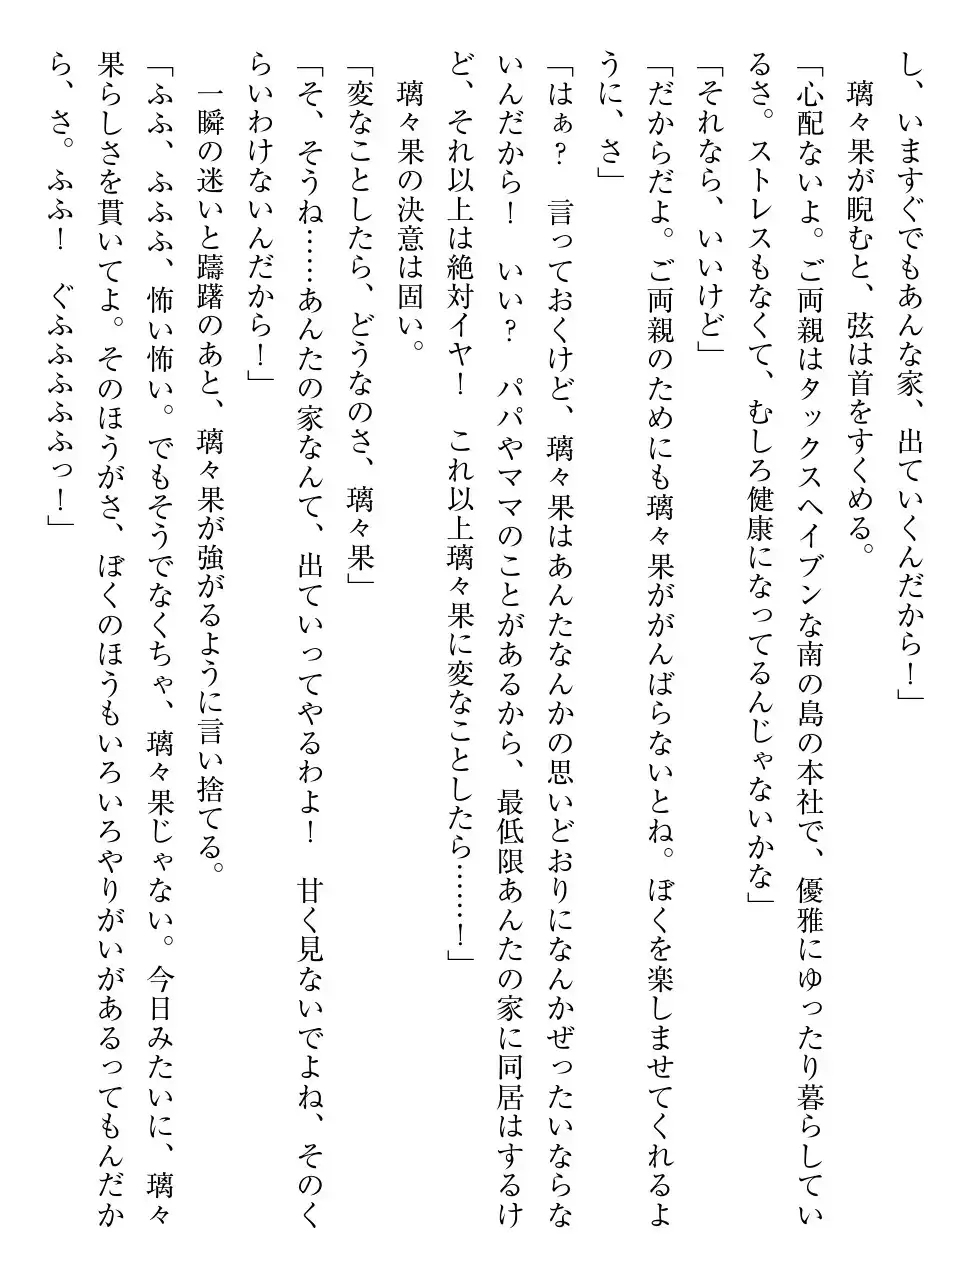 し、いますぐでもあんな家、出ていくんだから！」
　璃々果が睨むと、弦は首をすくめる。
「心配ないよ。ご両親はタックスヘイブンな南の島の本社で、優雅にゆったり暮らしてい
るさ。ストレスもなくて、むしろ健康になってるんじゃないかな」
「それなら、いいけど」
「だからだよ。ご両親のためにも璃々果ががんばらないとね。ぼくを楽しませてくれるよ
うに、さ」
「はぁ？　言っておくけど、璃々果はあんたなんかの思いどおりになんかぜったいならな
いんだから！　いい？　パパやママのことがあるから、最低限あんたの家に同居はするけ
ど、それ以上は絶対イヤ！　これ以上璃々果に変なことしたら………！」
　璃々果の決意は固い。
「変なことしたら、どうなのさ、璃々果」
「そ、そうね……あんたの家なんて、出ていってやるわよ！　甘く見ないでよね、そのく
らいわけないんだから！」
　一瞬の迷いと躊躇のあと、璃々果が強がるように言い捨てる。
「ふふ、ふふふ、怖い怖い。でもそうでなくちゃ、璃々果じゃない。今日みたいに、璃々
果らしさを貫いてよ。そのほうがさ、ぼくのほうもいろいろやりがいがあるってもんだか
ら、さ。ふふ！　ぐふふふふふっ！」